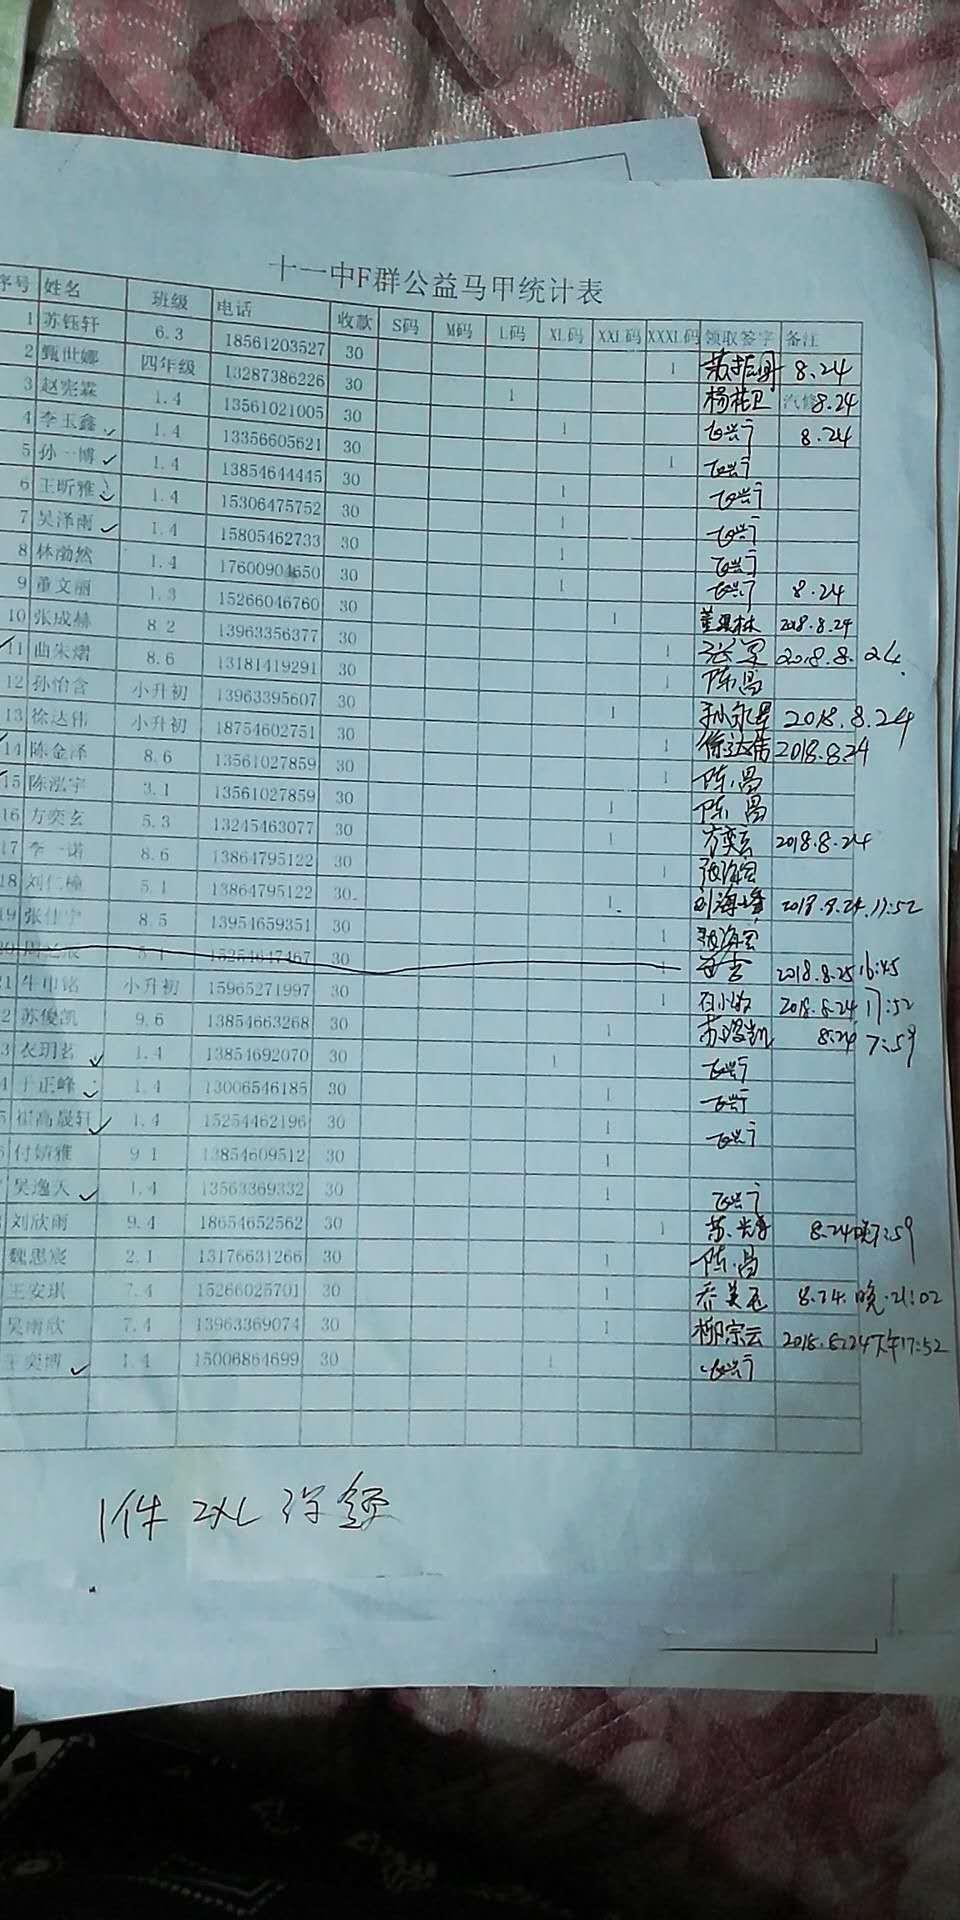 十一中F群公益马甲统计表
序号 姓名 班级 电话 收款 S码 M码 L码 XL码 XXL码 XXXL码 领取签字 备注
1 苏钰轩 6.3 18561203527 30 1 8.24
2 甄世娜 四年级 13287386226 30 1 杨桂卫 汽修8.24
3 赵宪霖 1.4 13561021005 30 1 8.24
4 李玉鑫 1.4 13356605621 30 1
5 孙一博 1.4 13854644445 30 1
6 王昕雅 1.4 15306475752 30 1
7 吴泽雨 1.4 15805462733 30 1
8 林渤然 1.4 17600904650 30 1 8.24
9 董文丽 1.3 15266046760 30 1 2018.8.24
10 张成赫 8.2 13963356377 30 1 张军 2018.8.24.
11 曲朱熠 8.6 13181419291 30 1 陈昌
12 孙怡含 小升初 13963395607 30 1 2018.8.24
13 徐达伟 小升初 18754602751 30 1 徐达伟 2018.8.24
14 陈金泽 8.6 13561027859 30 1 陈昌
15 陈泓宇 3.1 13561027859 30 1 陈昌
16 方奕玄 5.3 13245463077 30 1 方奕玄 2018.8.24
17 李一诺 8.6 13864795122 30 1
18 刘仁楠 5.1 13864795122 30 1 刘海峰 2018.8.24.17:52
19 张仕宇 8.5 13954659351 30 1
20 5.1 15254647467 30 1 2018.8.25 16:45
21 牛巾铭 小升初 15965271997 30 1 2018.8.24 17:52
2 苏俊凯 9.6 13854663268 30 1 苏俊凯 8.24 7:59
3 衣玥茗 1.4 13854692070 30 1
4 于正峰 1.4 13006546185 30 1
5 崔高晟轩 1.4 15254462196 30 1
6 付婧雅 9.1 13854609512 30 1
吴逸天 1.4 13563369332 30 1
刘欣雨 9.4 18654652562 30 1 8.24晚7:59
魏思宸 2.1 13176631266 30 1 陈昌
王安琪 7.4 15266025701 30 1 乔美玉 8.24.晚.21:02
吴雨欣 7.4 13963369074 30 1 柳宗云 2018.8.24下午17:52
王奕博 1.4 15006864699 30 1
1件 2XL